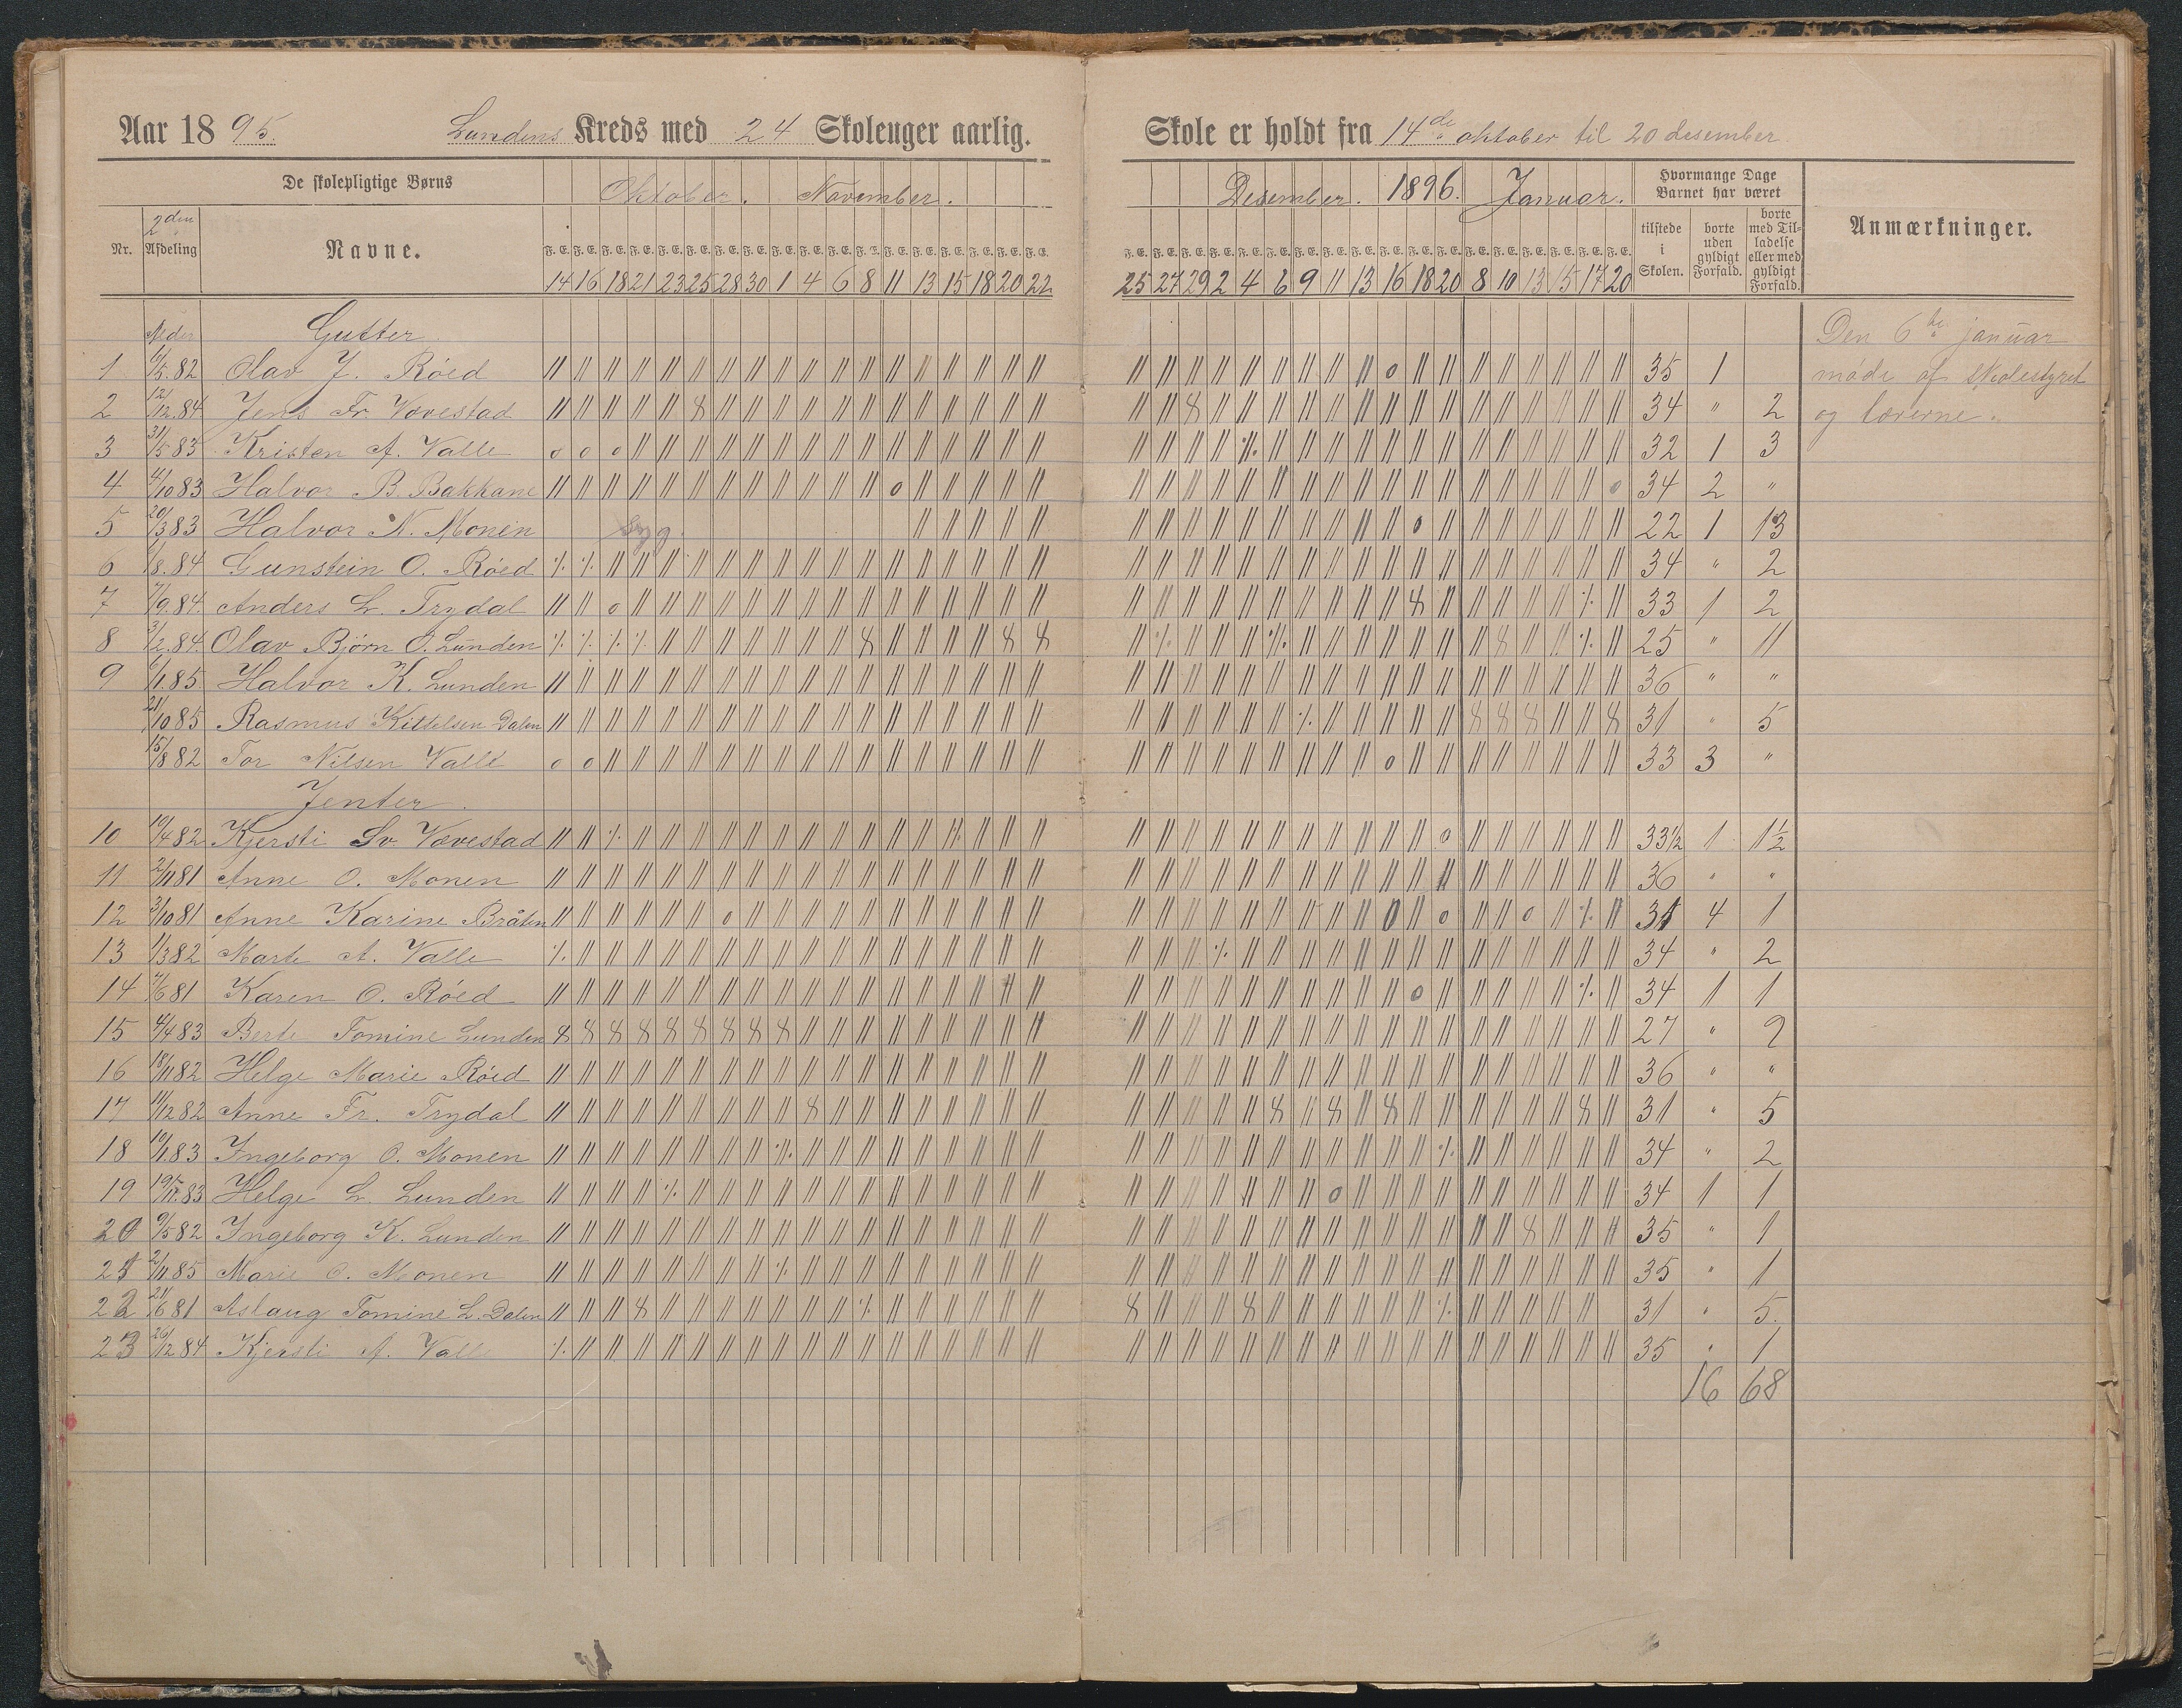 Aar 1895. Lundens Kreds med 24 Skoleuger aarlig. Skole er holdt fra 14de oktober til 20 desember.
De skolepligtige Børns Oktober. November. Desember. 1896. Januar. Hvormange Dage Barnet har været
Nr. 2den Afdeling Navne. tilstede i Skolen. borte uden gyldigt Forfald. borte med Tilladelse eller med gyldigt Forfald. Anmærkninger.
14 16 18 21 23 25 28 30 1 4 6 8 11 13 15 18 20 22 25 27 29 2 4 6 9 11 13 16 18 20 8 10 13 15 17 20
Alder Gutter Den 6te januar
1 /5.82 Olav J. Röed 35 1 møde af skolestyret
2 12/12.84 Jens Fr. Vovestad 34 " 2 og lærerne.
3 31/5 83 Kristen A. Valle 32 1 3
4 4/10 83 Halvor B. Bakkane 34 2 "
5 20/3 83 Halvor N. Monen Syg. 22 1 13
6 /8.84 Gunstein O. Röed 34 " 2
7 7/9.84. Anders L. Trydal 33 1 2
8 3/2.84. Olav Björn O. Lunden 25 " 11
9 6/1.85. Halvor K. Lunden 36 " "
21/10 85 Rasmus Kittelsen Dalen 31 " 5
15/8 82 Tor Nilsen Valle 33 3 "
Jenter.
10 19/4 82 Kjersti Sv. Vovestad 33½ 1 1½
11 2/11 81 Anne O. Monen 36 " "
12 3/10 81 Anne Karine Bråten 31 4 1
13 1/3 82 Marte A. Valle 34 " 2
14 7/6 81 Karen O. Röed 34 1 1
15 4/4 83 Berte Tomine Lunden 27 " 9
16 18/11 82 Helge Marie Röed 36 " "
17 11/12 82 Anne Fr. Trydal 31 " 5
18 10/1.83 Ingeborg O. Monen 34 " 2
19 19/11.83 Helge L. Lunden 34 1 1
20 9/5 82 Ingeborg K. Lunden 35 " 1
21 2/11 85 Marie O. Monen 35 " 1
22 21/6 81 Aslaug Tomine L. Dalen 31 " 5.
23 20/12 84 Kjersti A. Valle 35 " 1
16 68